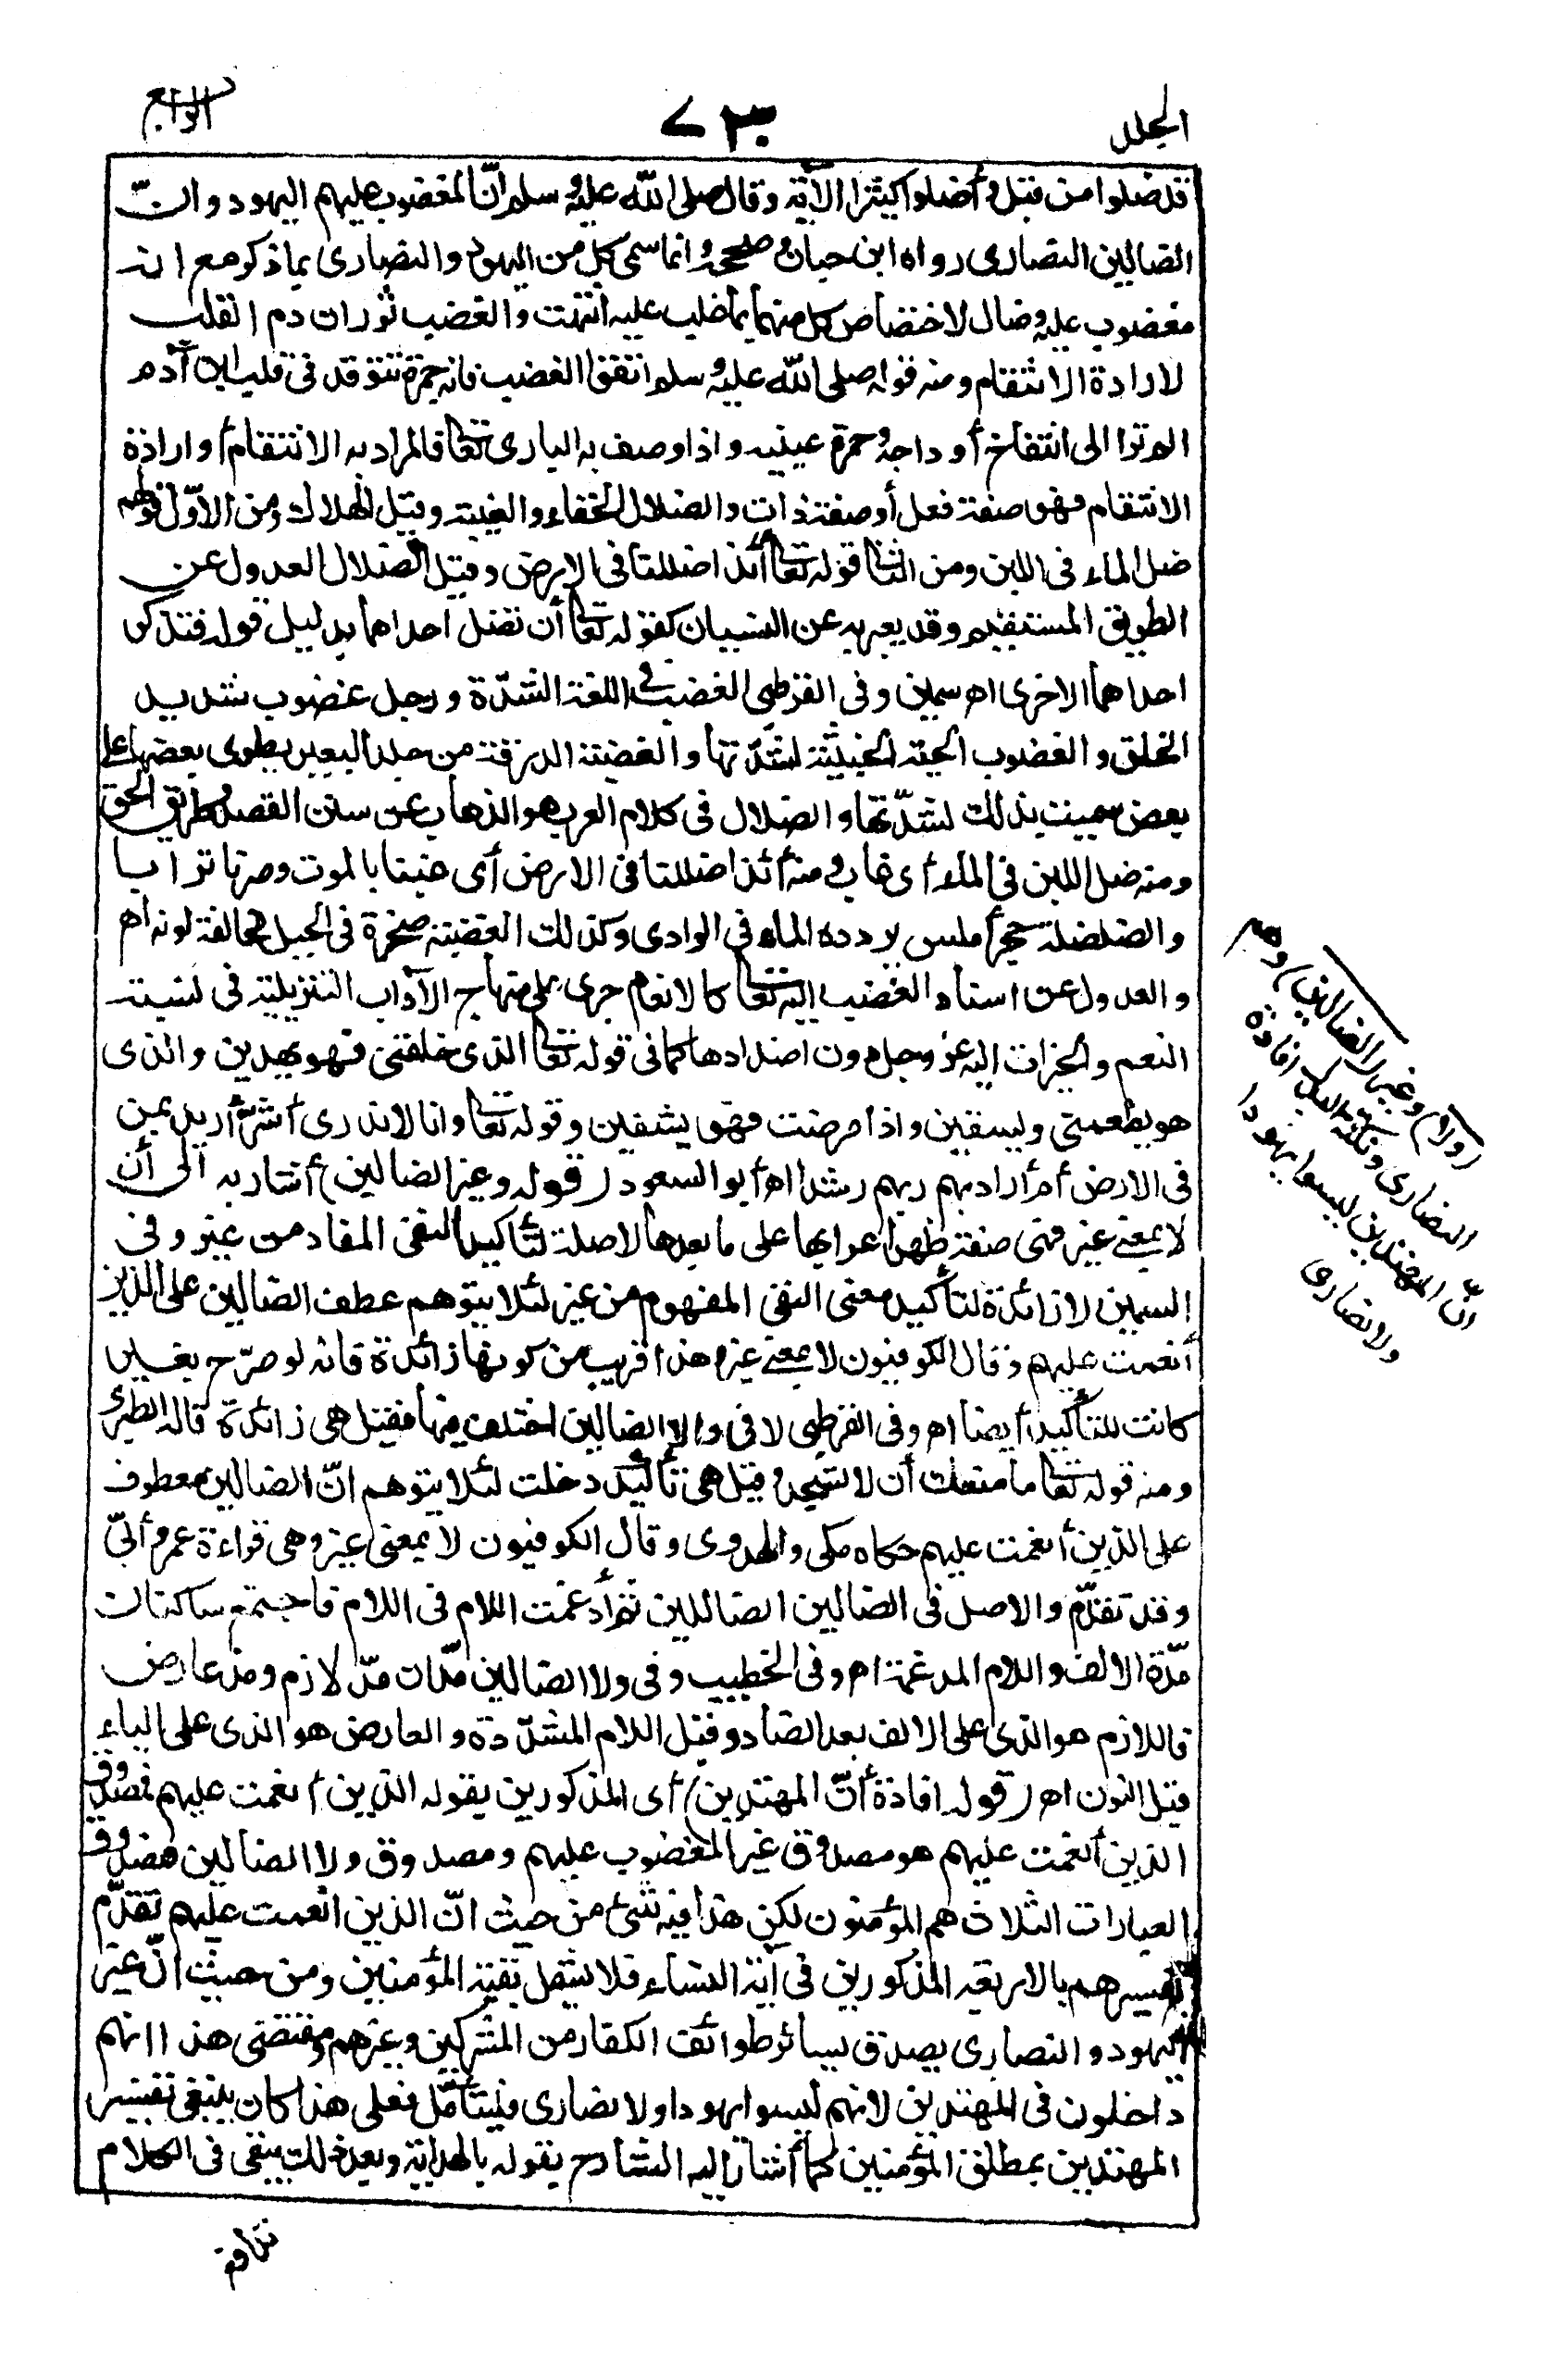 الجلد
٧٣٠
الرابع
قد ضلوا من قبل وأضلوا كثيرا الآية وقال صلى الله عليه وسلم إنّ المغضوب عليهم اليهود وانّ
الضالين النصارى رواه ابن حبان وصححه وانما سمى كل من اليهود والنصارى بما ذكر مع انه
مغضوب عليه وضال لاختصاص كل منهما بما غلب عليه انتهت والغضب ثوران دم القلب
لارادة الانتقام ومنه قوله صلى الله عليه وسلم اتقوا الغضب فانه جمرة تتوقد فى قلب ابن آدم
الم تروا الى انتفاخ أوداجه وحمرة عينيه واذا وصف به البارى تعا فالمراد به الانتقام أو ارادة
الانتقام فهو صفة فعل أو صفة ذات والضلال الخفاء والغيبة وقيل الهلاك ومن الأوّل قولهم
ضل الماء فى اللبن ومن الثانى قوله تعا أئذا ضللنا فى الارض وقيل الضلال العدول عن
الطريق المستقيم وقد يعبر به عن النسيان كقوله تعا أن تضل احداهما بدليل قوله فتذكر
احداهما الاخرى اهـ سمين وفى القرطبى الغضب فى اللغة الشدّة ورجل غضوب شديد
الخلق والغضوب الحية الخبيثة لشدّتها والغضبة الدرقة من جلد البعير يطوى بعضها على
بعض سميت بذلك لشدّتها والضلال فى كلام العرب هو الذهاب عن سنن القصد وطريق الحق
ومنه ضل اللبن فى الماء أى غاب ومنه أئذا ضللنا فى الارض أى غبنا بالموت وصرنا ترابا
والضلضلة حجر أملس يردده الماء فى الوادى وكذلك الغضبة صخرة فى الجبل مخالفة لونه اهـ
والعدول عن اسناد الغضب اليه تعا كالانعام جرى على منهاج الآداب التنزيلية فى نسبة
النعم والخيرات اليه عز وجل دون اضدادها كما فى قوله تعا الذى خلقنى فهو يهدين والذى
هو يطعمنى ويسقين واذا مرضت فهو يشفين وقوله تعا وانا لا ندرى أشرّ أريد بمن
فى الارض أم أراد بهم ربهم رشدا اهـ أبو السعود (قوله وغير الضالين) أشار به الى أن
لا بمعنى غير فهى صفة ظهر اعرابها على ما بعدها لا صلة لتأكيد النفى المفاد من غير وفى
السمين لا زائدة لتأكيد معنى النفى المفهوم من غير لئلا يتوهم عطف الضالين على الذين
أنعمت عليهم وقال الكوفيون لا بمعنى غير وهذا قريب من كونها زائدة فانه لو صرّح بغير
كانت للتأكيد أيضا اهـ وفى القرطبى لا فى ولا الضالين اختلف فيها فقيل هى زائدة قاله الطبرى
ومنه قوله تعا ما منعك أن لا تسجد وقيل هى تأكيد دخلت لئلا يتوهم انّ الضالين معطوف
على الذين أنعمت عليهم حكاه مكى والمهدوى وقال الكوفيون لا بمعنى غير وهى قراءة عمر وأبىّ
وقد تقدّم والاصل فى الضالين الضاللين ثم أدغمت اللام فى اللام فاجتمع ساكنان
مدّة الالف واللام المدغمة اهـ وفى الخطيب وفى ولا الضالين مدّان مدّ لازم ومد عارض
فاللازم هو الذى على الالف بعد الضاد وقبل اللام المشدّدة والعارض هو الذى على الياء
قبل النون اهـ (قوله افادة أنّ المهتدين) أى المذكورين بقوله الذين أنعمت عليهم فصدوق
الذين أنعمت عليهم هو مصدوق غير المغضوب عليهم ومصدوق ولا الضالين فصدوق
العبارات الثلاث هم المؤمنون لكن هذا فيه شئ من حيث انّ الذين أنعمت عليهم تقدّم
تفسيرهم بالاربعة المذكورين فى آية النساء فلا يشمل بقية المؤمنين ومن حيث انّ غير
اليهود والنصارى يصدق بسائر طوائف الكفار من المشركين وغيرهم ومقتضى هذا انهم
داخلون فى المهتدين لانهم ليسوا يهودا ولا نصارى فليتأمّل فعلى هذا كان ينبغى تفسير
المهتدين بمطلق المؤمنين كما أشار اليه الشارح بقوله بالهداية وبعد ذلك يبقى فى الكلام
(ولا) وغير (الضالين) وهم
النصارى ونكتة البدل افادة
انّ المهتدين ليسوا يهودا
ولا نصارى